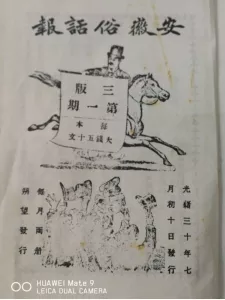 安徽俗話報
三版
第一期
每本
大錢五十文
光緒三十年七
月初十日發行
每月兩冊
朔望發行
HUAWEI Mate 9
LEICA DUAL CAMERA